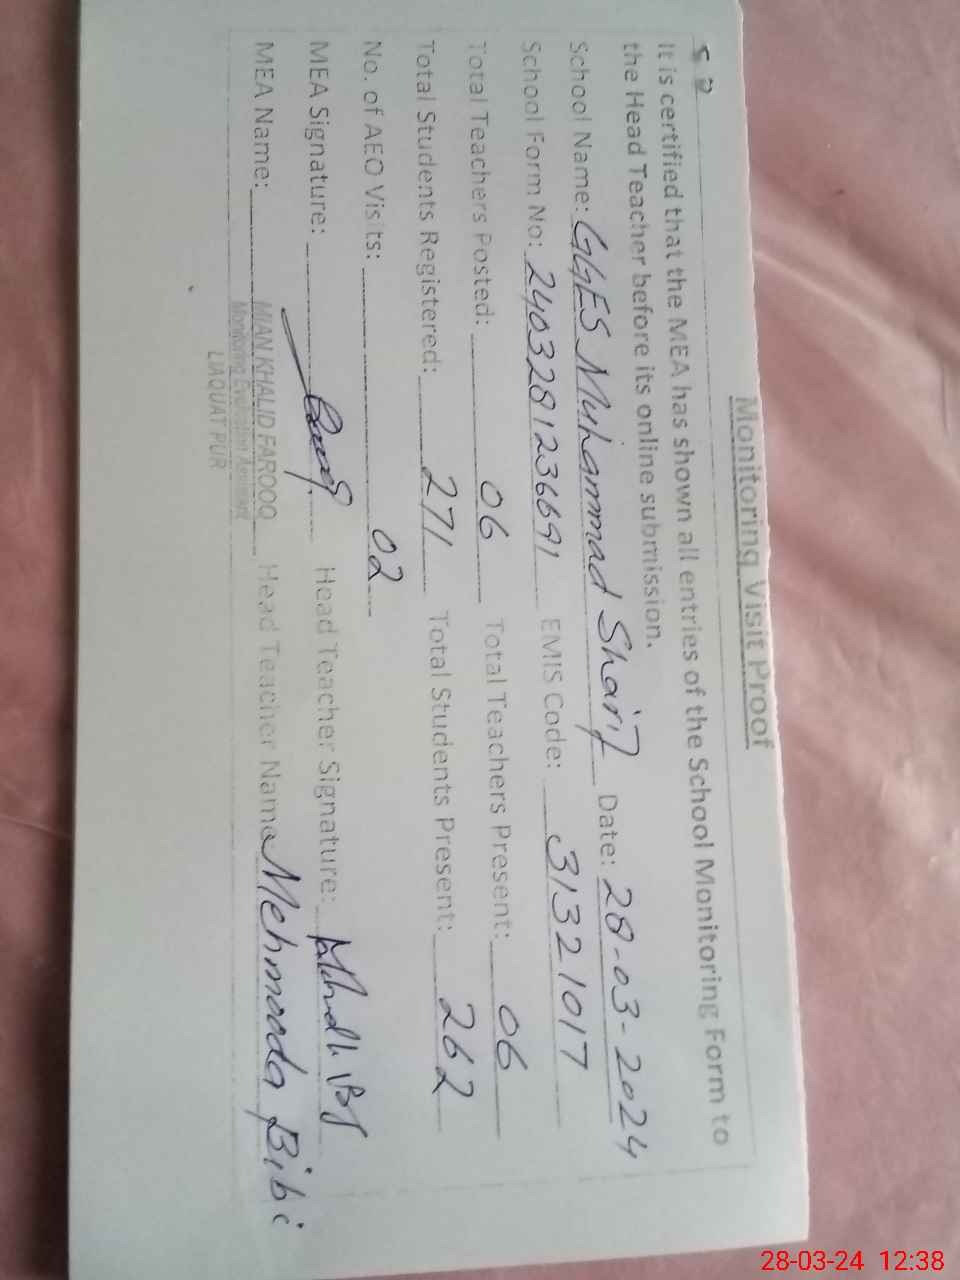 Monitoring Visit Proof
It is certified that the MEA has shown all entries of the School Monitoring Form to
the Head Teacher before its online submission.
School Name: GGES Muhammad Sharif Date: 28-03-2024
School Form No: 240328123669 1 EMIS Code: 31321017
Total Teachers Posted: 06 Total Teachers Present: 06
Total Students Registered: 271 Total Students Present: 262
No. of AEO Visits: 02
MEA Signature: Head Teacher Signature:
MEA Name: MIAN KHALID FAROOQ Head Teacher Name Mehmooda Bibi
Monitoring Evaluation Assistant
LIAQUAT PUR
28-03-24 12:38